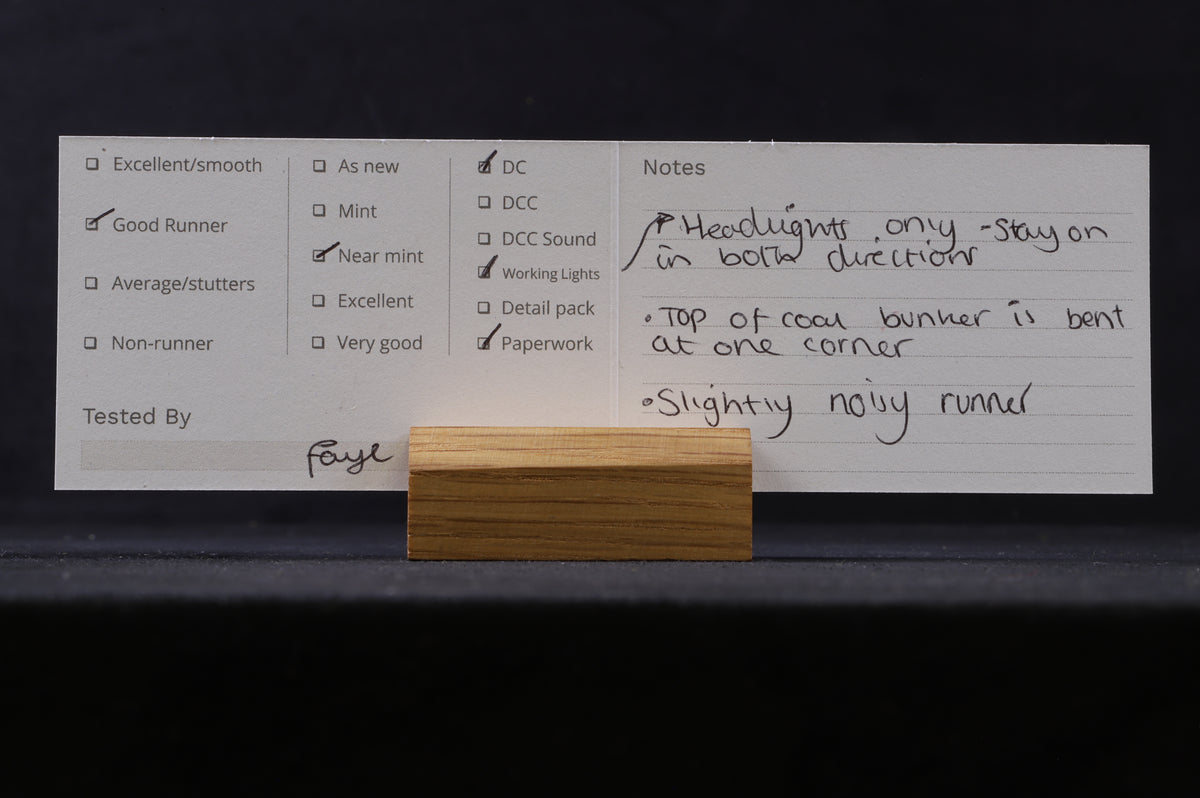 Excellent/smooth
Good Runner
Average/stutters
Non-runner
As new
Mint
Near mint
Excellent
Very good
DC
DCC
DCC Sound
Working Lights
Detail pack
Paperwork
Tested By
Faye
Notes
Headlights only - Stay on
in both directions
• Top of coal bunker is bent
at one corner
• Slightly noisy runner